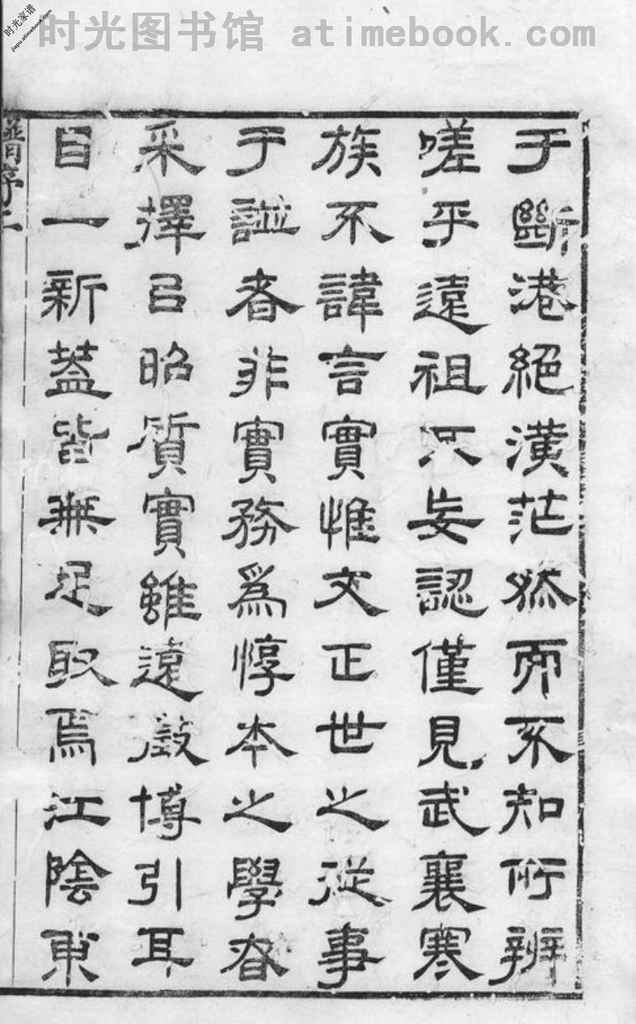 时光图书馆 atimebook.com
时光家谱
于斷港絕潢茫然而不知所辨
嗟乎遠祖不妄認僅見武襄寒
族不諱言實惟文正世之從事
于譜者非實務為惇本之學者
采擇㠯昭質實雖遠徵博引耳
目一新蓋皆無足取焉江陰東
譜序二